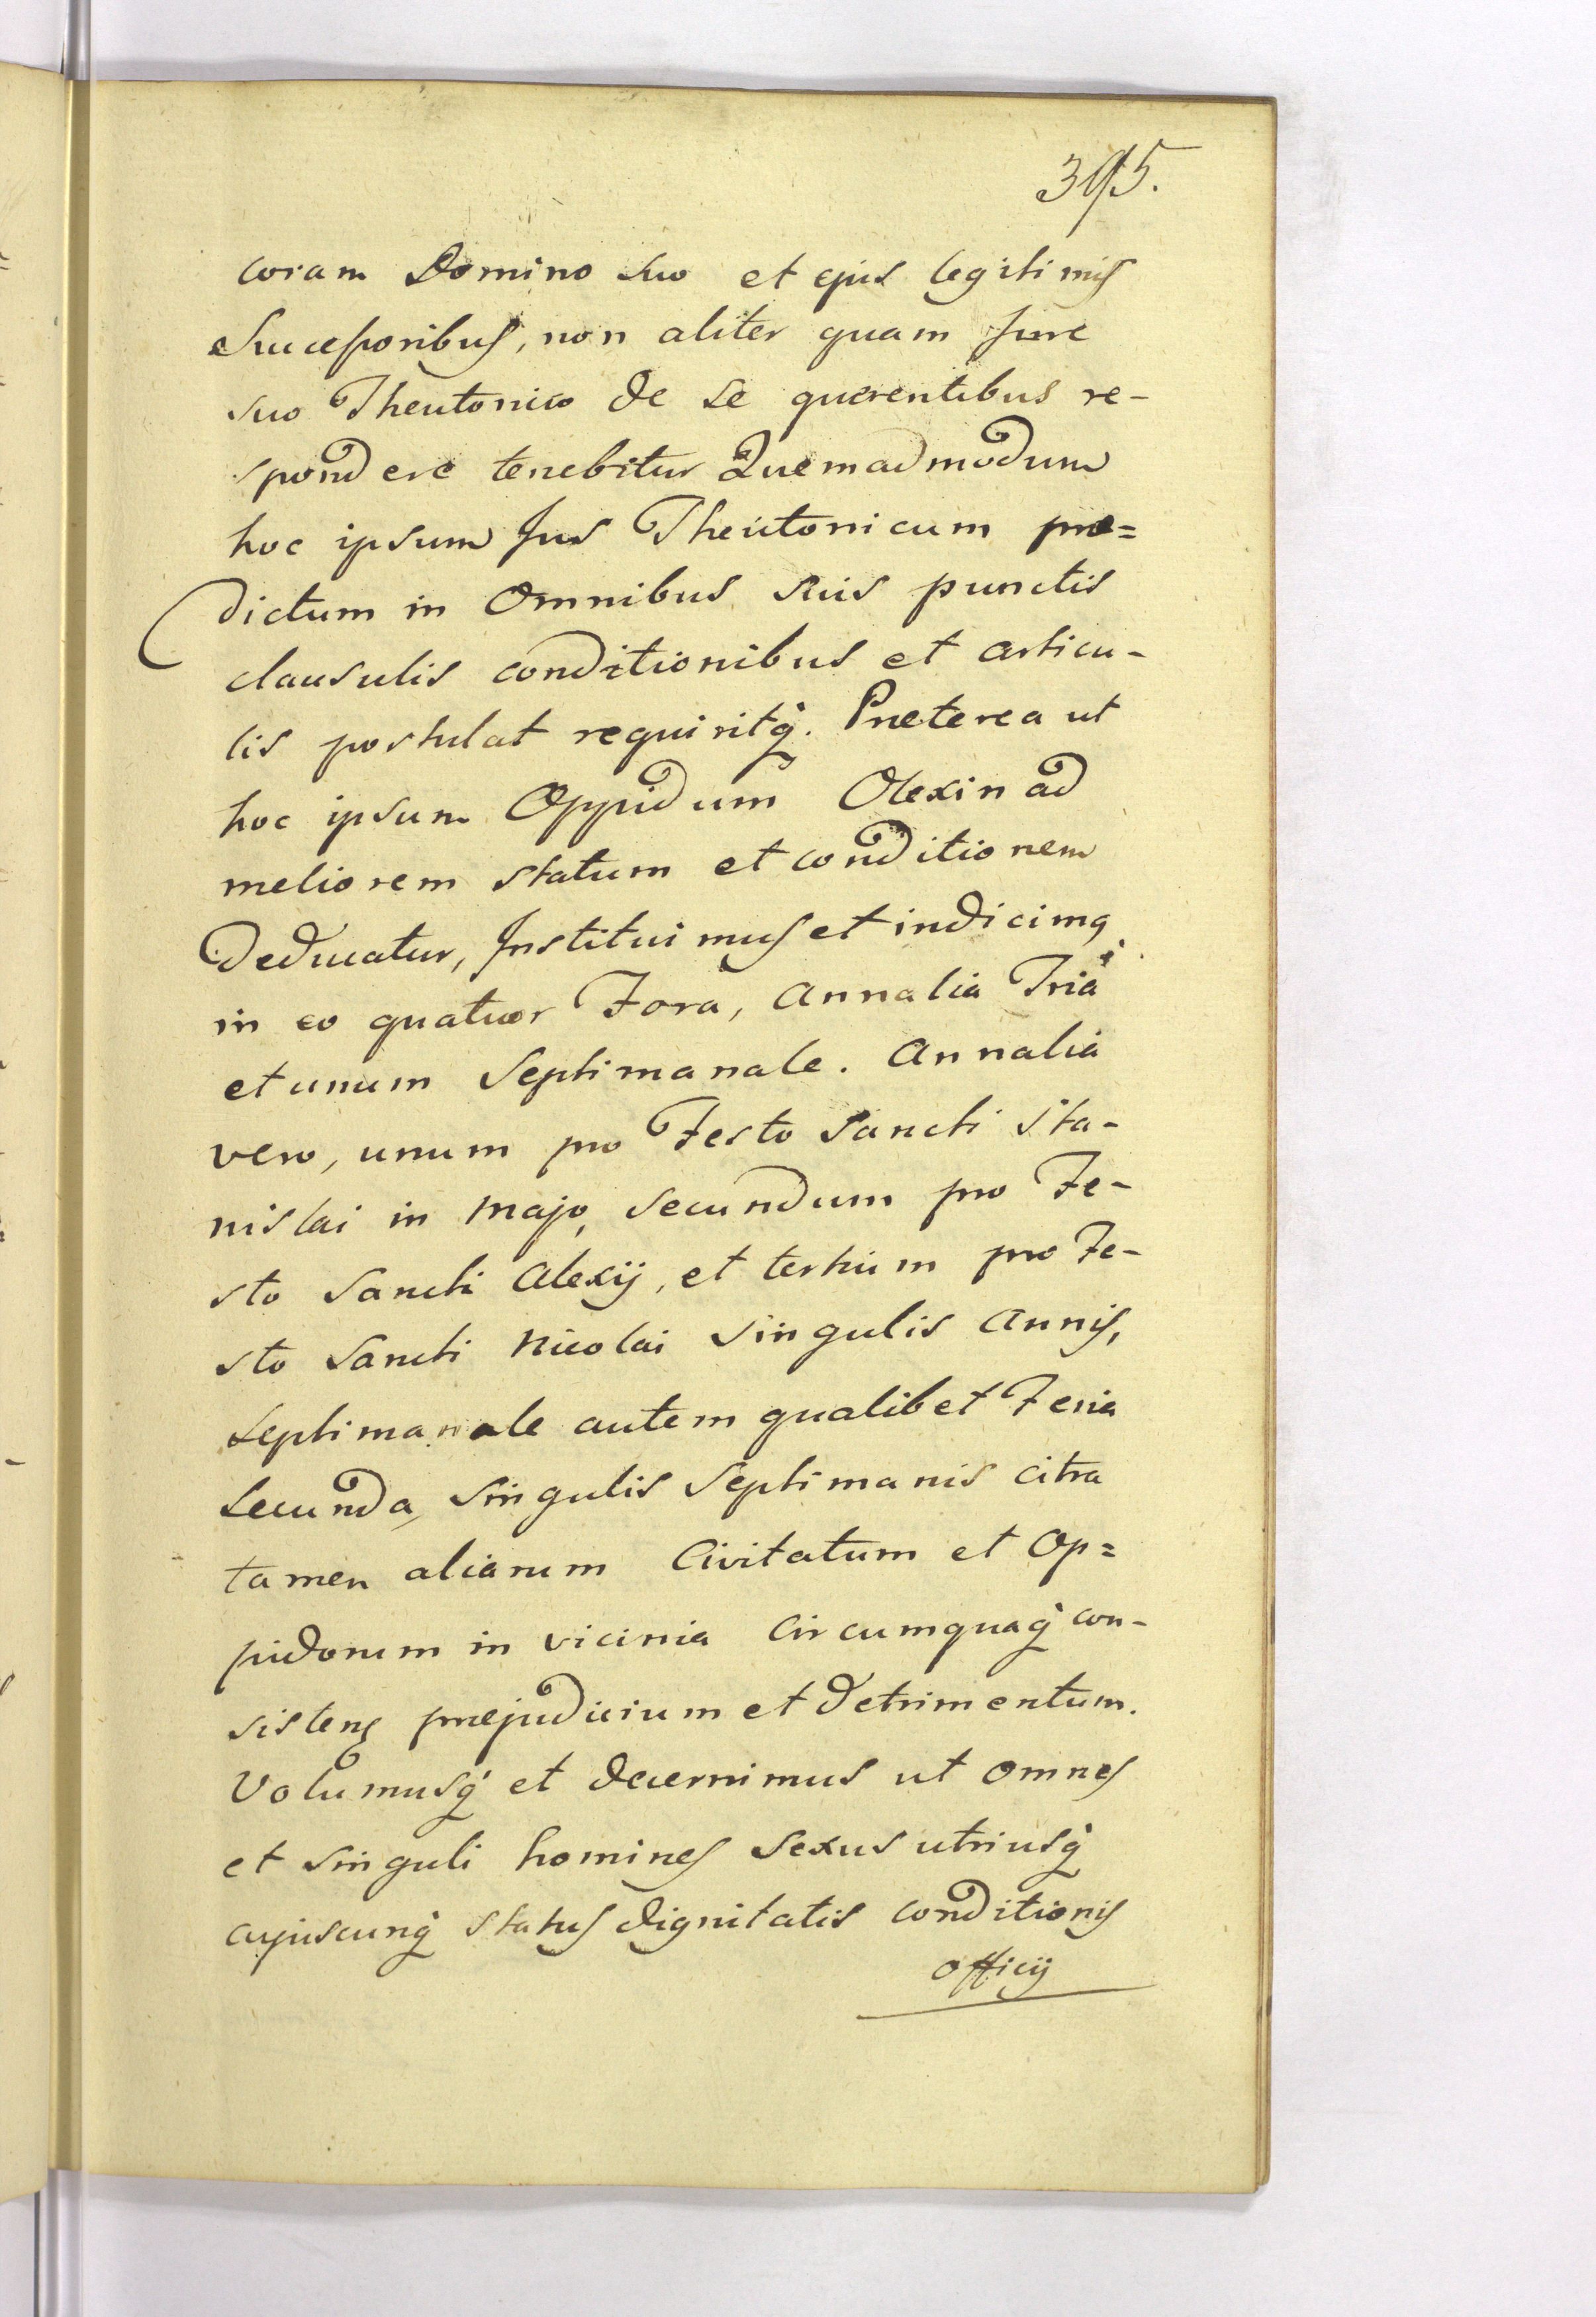 395.
coram Domino suo et ejus legitimis
Successoribus, non aliter quam Jure
suo Theutonico de se querentibus re-
spondere tenebitur Quemadmodum
hoc ipsum Jus Theutonicum præ=
dictum in Omnibus suis punctis
clausulis conditionibus et articu-
lis postulat requiritq. Præterea ut
hoc ipsum Oppidum Olexin ad
meliorem statum et conditionem
Deducatur, Instituimus et indicimq
in eo quatuor Fora, Annalia Tria
et unum Septimanale. Annalia
vero, unum pro Festo Sancti Sta-
nislai in Majo, secundum pro Fe-
sto Sancti Alexij, et tertium pro Fe-
sto Sancti Nicolai singulis Annis,
Septimanale autem qualibet Feria
Secunda, singulis Septimanis citra
tamen aliarum Civitatum et Op=
pidorum in vicinia Circumquaq con-
sisteng præjudicium et detrimentum.
Volumusq et decernimus ut omnes
et singuli homines Sexus utriusq
cujuscunq status dignitatis conditionis
officij